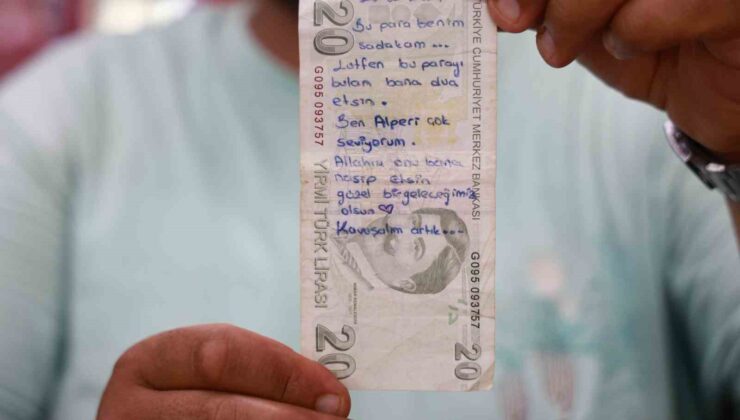 Bu para benim
sadakam ...
Lütfen bu parayı
bulan bana dua
etsin.
Ben Alperi çok
seviyorum.
Allahım onu bana
nasip etsin
güzel bir geleceğimiz
olsun ♡
Kavuşalım artık...
20
G095 093757
YİRMİ TÜRK LİRASI
20
TÜRKİYE CUMHURİYET MERKEZ BANKASI
G095 093757
20